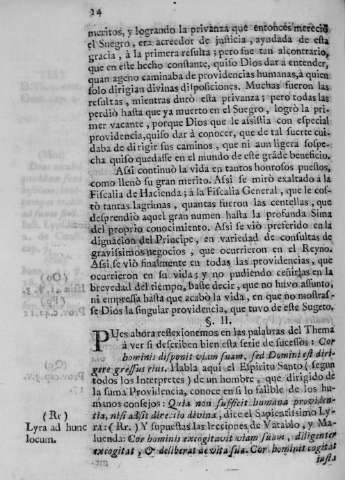 24
meritos, y logrando la privanza que entonces mereciò
el Suegro, era acreedor de justicia, ayudada de esta
gracia, à la primera resulta; pero fue tan al contrario,
que en este hecho constante, quiso Dios dar à entender,
quan ageno caminaba de providencias humanas, à quien
solo dirigian divinas disposiciones. Muchas fueron las
resultas, mientras durò esta privanza; pero todas las
perdiò hasta que ya muerto en el Suegro, logrò la pri-
mer vacante, porque Dios que le assistia con especial
providencia, quiso dar à conocer, que de tal suerte cui-
daba de dirigir sus caminos, que ni aun ligera sospe-
cha quiso quedasse en el mundo de este grãde beneficio.
Assi continuò la vida en tantos honrosos puestos,
como llenò su gran merito. Assi se mirò exaltado à la
Fiscalia de Hacienda; à la Fiscalia General, que le cos-
tò tantas lagrimas, quantas fueron las centellas, que
desprendiò aquel gran numen hasta la profunda Sima
del proprio conocimiento. Assi se viò preferido en la
dignacion del Principe, en variedad de consultas de
gravissimos negocios, que ocurrieron en el Reyno.
Assi se viò finalmente en todas las providencias, que
ocurrieron en su vida; y no pudiendo ceñirlas en la
brevedad del tiempo, baste decir, que no huvo assunto,
ni empressa hasta que acabò la vida, en que no mostras-
se Dios la singular providencia, que tuvo de este Sugeto.
§. II.
PUes ahora reflexionemos en las palabras del Thema
à ver si describen bien esta serie de sucessos: Cor
hominis disponit viam suam, sed Domini est diri-
gere gressus eius. Habla aqui el Espiritu Santo (segun
todos los Interpretes) de un hombre, que dirigido de
la suma Providencia, conoce en sì lo falible de los hu-
manos consejos: Quia non sufficit humana providen-
tia, nisi adsit directio divina, dice el Sapientissimo Ly-
ra: (Rr.) Y supuestas las lecciones de Vatablo, y Ma-
luenda: Cor hominis excogitavit viam suam, diligenter
excogitat, & deliberat de vita sua. Cor hominis cogitat
iusta
(Rr)
Lyra ad hunc
locum.